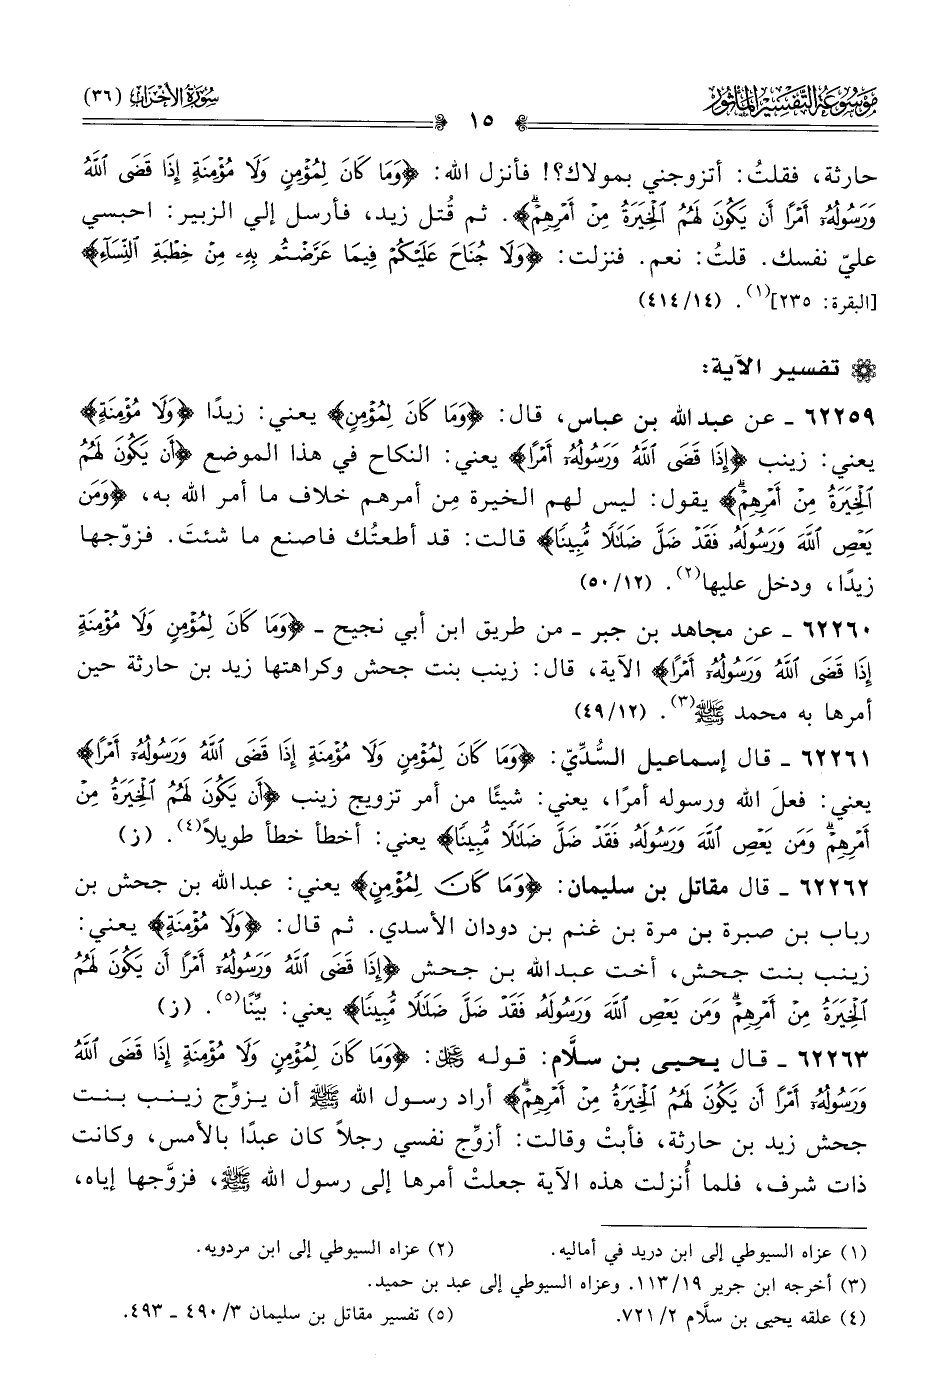 مَوْسُوعَة التَّفْسِيْر المَأْثُور
١٥
سُورَةُ الأَحْزَابِ (٣٦)
حارثة، فقلتُ: أتزوجني بمولاك؟! فأنزل الله: ﴿وَمَا كَانَ لِمُؤْمِنٍ وَلَا مُؤْمِنَةٍ إِذَا قَضَى ٱللَّهُ
وَرَسُولُهُۥٓ أَمْرًا أَن يَكُونَ لَهُمُ ٱلْخِيَرَةُ مِنْ أَمْرِهِمْۗ﴾. ثم قُتل زيد، فأرسل إلي الزبير: احبسي
عليّ نفسك. قلتُ: نعم. فنزلت: ﴿وَلَا جُنَاحَ عَلَيْكُمْ فِيمَا عَرَّضْتُم بِهِۦ مِنْ خِطْبَةِ ٱلنِّسَآءِ﴾
[البقرة: ٢٣٥](١). (٤١٤/١٤)
تفسير الآية:
٦٢٢٥٩ ـ عن عبدالله بن عباس، قال: ﴿وَمَا كَانَ لِمُؤْمِنٍ﴾ يعني: زيدًا ﴿وَلَا مُؤْمِنَةٍ﴾
يعني: زينب ﴿إِذَا قَضَى ٱللَّهُ وَرَسُولُهُۥٓ أَمْرًا﴾ يعني: النكاح في هذا الموضع ﴿أَن يَكُونَ لَهُمُ
ٱلْخِيَرَةُ مِنْ أَمْرِهِمْۗ﴾ يقول: ليس لهم الخيرة مِن أمرهم خلاف ما أمر الله به، ﴿وَمَن
يَعْصِ ٱللَّهَ وَرَسُولَهُۥ فَقَدْ ضَلَّ ضَلَٰلًا مُّبِينًا﴾ قالت: قد أطعتُك فاصنع ما شئتَ. فزوّجها
زيدًا، ودخل عليها(٢). (٥٠/١٢)
٦٢٢٦٠ ـ عن مجاهد بن جبر ـ من طريق ابن أبي نجيح ـ ﴿وَمَا كَانَ لِمُؤْمِنٍ وَلَا مُؤْمِنَةٍ
إِذَا قَضَى ٱللَّهُ وَرَسُولُهُۥٓ أَمْرًا﴾ الآية، قال: زينب بنت جحش وكراهتها زيد بن حارثة حين
أمرها به محمد ﷺ(٣). (٤٩/١٢)
٦٢٢٦١ ـ قال إسماعيل السُّدِّيّ: ﴿وَمَا كَانَ لِمُؤْمِنٍ وَلَا مُؤْمِنَةٍ إِذَا قَضَى ٱللَّهُ وَرَسُولُهُۥٓ أَمْرًا﴾
يعني: فعلَ الله ورسوله أمرًا، يعني: شيئًا من أمر تزويج زينب ﴿أَن يَكُونَ لَهُمُ ٱلْخِيَرَةُ مِنْ
أَمْرِهِمْۗ وَمَن يَعْصِ ٱللَّهَ وَرَسُولَهُۥ فَقَدْ ضَلَّ ضَلَٰلًا مُّبِينًا﴾ يعني: أخطأ خطأ طويلاً(٤). (ز)
٦٢٢٦٢ ـ قال مقاتل بن سليمان: ﴿وَمَا كَانَ لِمُؤْمِنٍ﴾ يعني: عبدالله بن جحش بن
رباب بن صبرة بن مرة بن غنم بن دودان الأسدي. ثم قال: ﴿وَلَا مُؤْمِنَةٍ﴾ يعني:
زينب بنت جحش، أخت عبدالله بن جحش ﴿إِذَا قَضَى ٱللَّهُ وَرَسُولُهُۥٓ أَمْرًا أَن يَكُونَ لَهُمُ
ٱلْخِيَرَةُ مِنْ أَمْرِهِمْۗ وَمَن يَعْصِ ٱللَّهَ وَرَسُولَهُۥ فَقَدْ ضَلَّ ضَلَٰلًا مُّبِينًا﴾ يعني: بيِّنًا(٥). (ز)
٦٢٢٦٣ ـ قال يحيى بن سلَّام: قوله ﷻ: ﴿وَمَا كَانَ لِمُؤْمِنٍ وَلَا مُؤْمِنَةٍ إِذَا قَضَى ٱللَّهُ
وَرَسُولُهُۥٓ أَمْرًا أَن يَكُونَ لَهُمُ ٱلْخِيَرَةُ مِنْ أَمْرِهِمْۗ﴾ أراد رسول الله ﷺ أن يزوِّج زينب بنت
جحش زيد بن حارثة، فأبتْ وقالت: أزوِّج نفسي رجلاً كان عبدًا بالأمس، وكانت
ذات شرف، فلما أُنزلت هذه الآية جعلتْ أمرها إلى رسول الله ﷺ، فزوَّجها إياه،
(١) عزاه السيوطي إلى ابن دريد في أماليه. (٢) عزاه السيوطي إلى ابن مردويه.
(٣) أخرجه ابن جرير ١١٣/١٩. وعزاه السيوطي إلى عبد بن حميد.
(٤) علقه يحيى بن سلَّام ٧٢١/٢. (٥) تفسير مقاتل بن سليمان ٤٩٠/٣ ـ ٤٩٣.